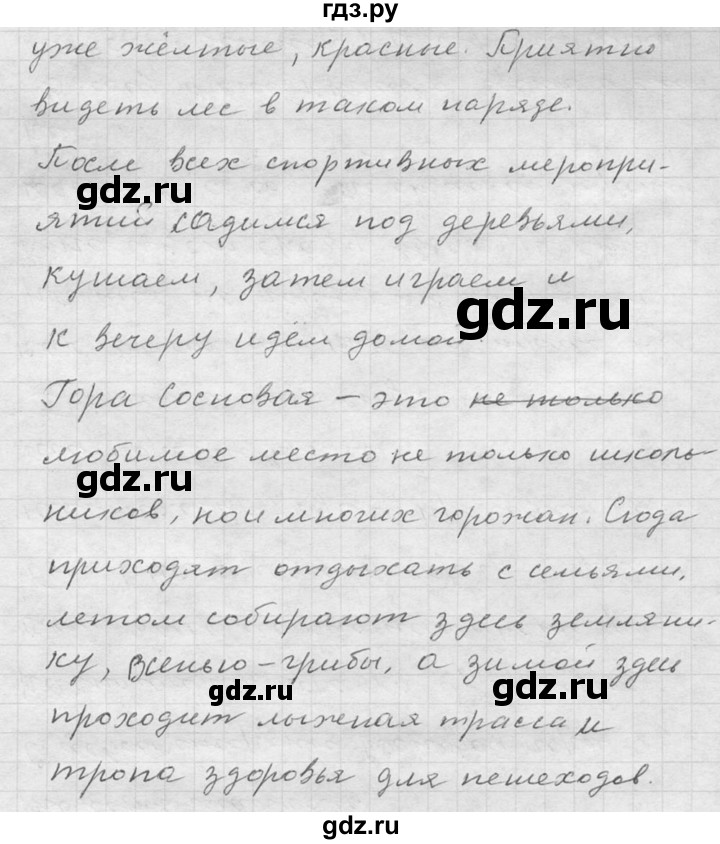 гдз.ру
уже жёлтые, красные. Приятно
видеть лес в таком наряде.
После всех спортивных меропри-
gdz.ru
ятий садимся под деревьями,
кушаем, затем играем и
gdz.ru
к вечеру идём домой.
Гора Сосновая – это не только
любимое место не только школь-
gdz.ru
ников, но и многих горожан. Сюда
приходят отдыхать с семьями,
летом собирают здесь земляни-
ку, осенью – грибы, а зимой здесь
gdz.ru
gdz.ru
проходит лыжная трасса и
тропа здоровья для пешеходов.
gdz.ru